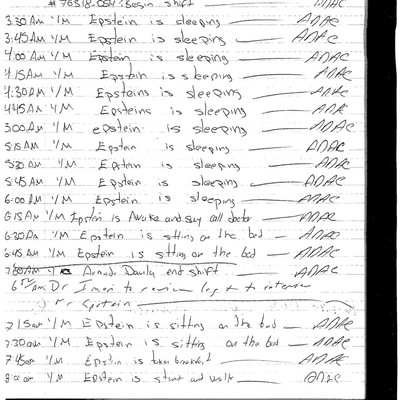 #76318-054 Begin shift ADAC
3:30 AM I/M Epstein is sleeping — ADAC
3:45 AM I/M Epstein is sleeping — ADAC
4:00 AM I/M Epstein is sleeping — ADAC
4:15 AM I/M Epstein is sleeping — ADAC
4:30 AM I/M Epstein is sleeping — ADAC
4:45 AM I/M Epsteins is sleeping — ADAC
5:00 AM I/M epstein is sleeping — ADAC
5:15 AM I/M Epstein is sleeping — ADAC
5:30 AM I/M Epstein is sleeping — ADAC
5:45 AM I/M Epstein is sleeping — ADAC
6:00 AM I/M Epstein is sleeping — ADAC
6:15 AM I/M Epstein is Awake and say call doctor — ADAC
6:30 AM I/M Epstein is sitting on the bed — ADAC
6:45 AM I/M Epstein is sitting on the bed — ADAC
7:00 AM end shift — ADAC
Dr to review log to interview
Mr Epstein
7:15 am I/M Epstein is sitting on the bed — ADAC
7:30 am I/M Epstein is sitting on the bed — ADAC
7:45 am I/M Epstein is taken breakfast — ADAC
8:00 am I/M Epstein is and — ADAC